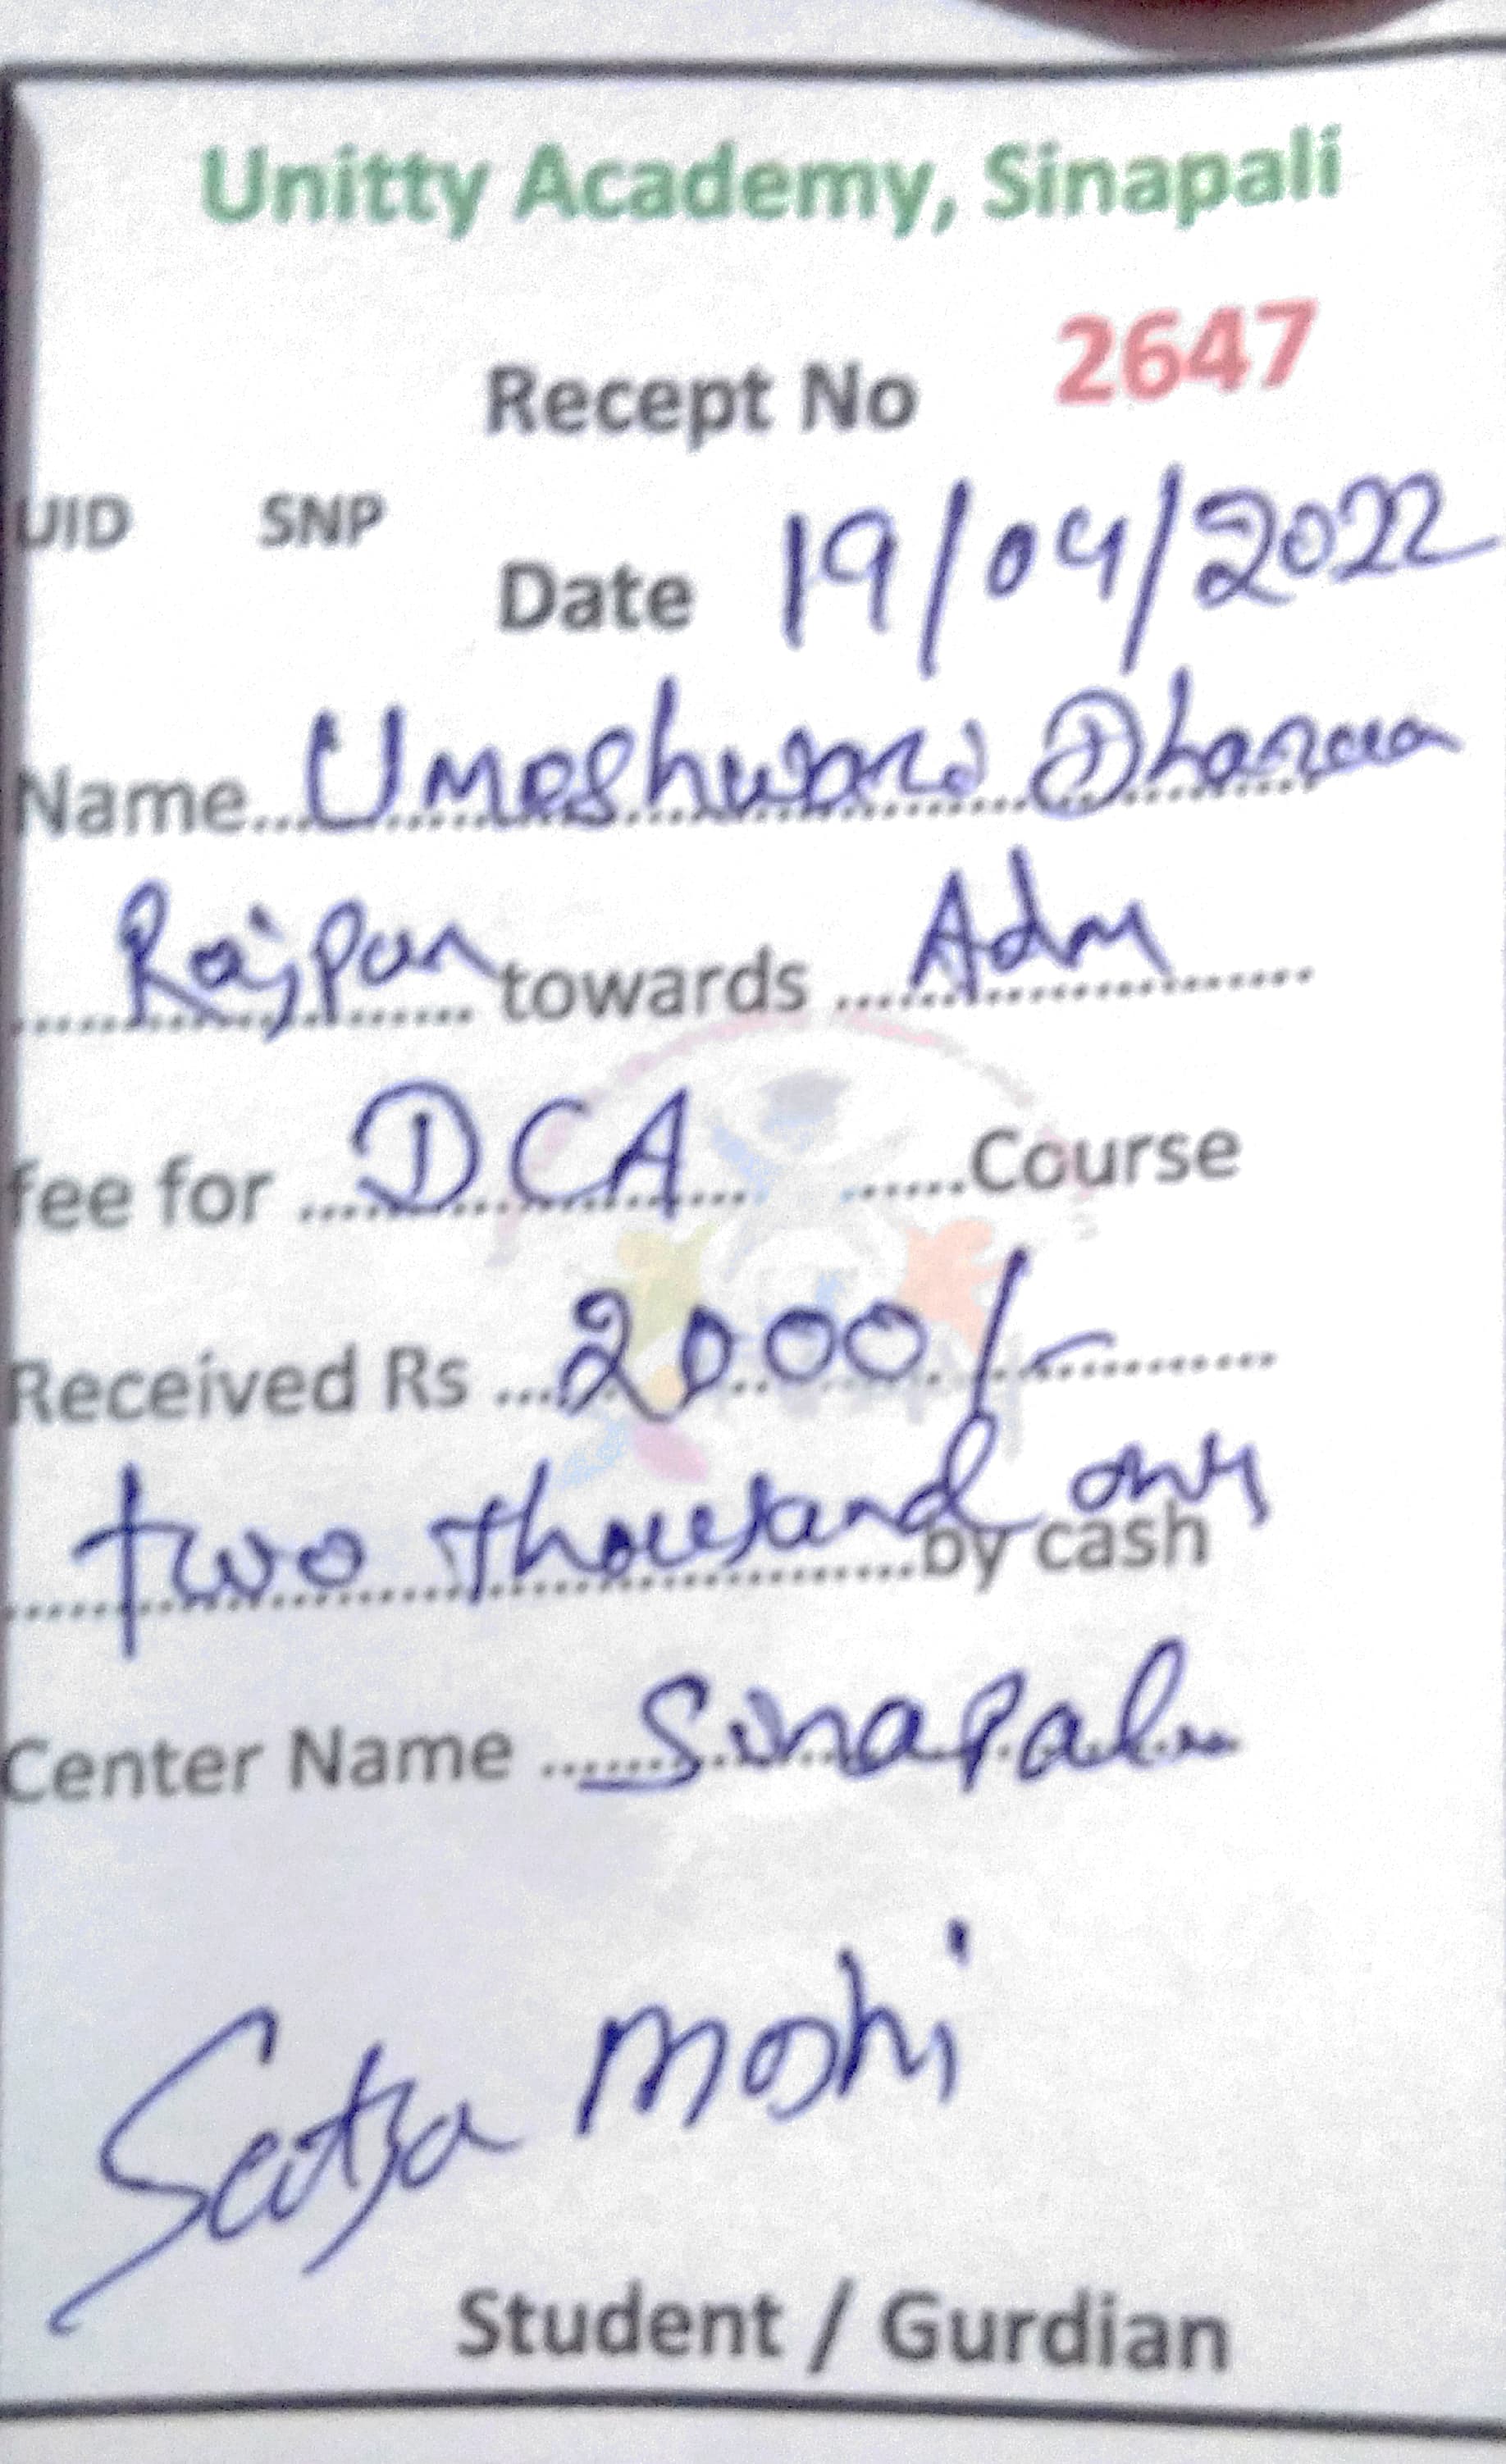 Unitty Academy, Sinapali
Recept No 2647
UID SNP
Date 19/04/2022
Name Umeshwari Dharua
Rajpur towards Adm
fee for DCA Course
Received Rs 2000/-
two thousand only
by cash
Center Name Sinapali
Satya Moshi
Student / Gurdian